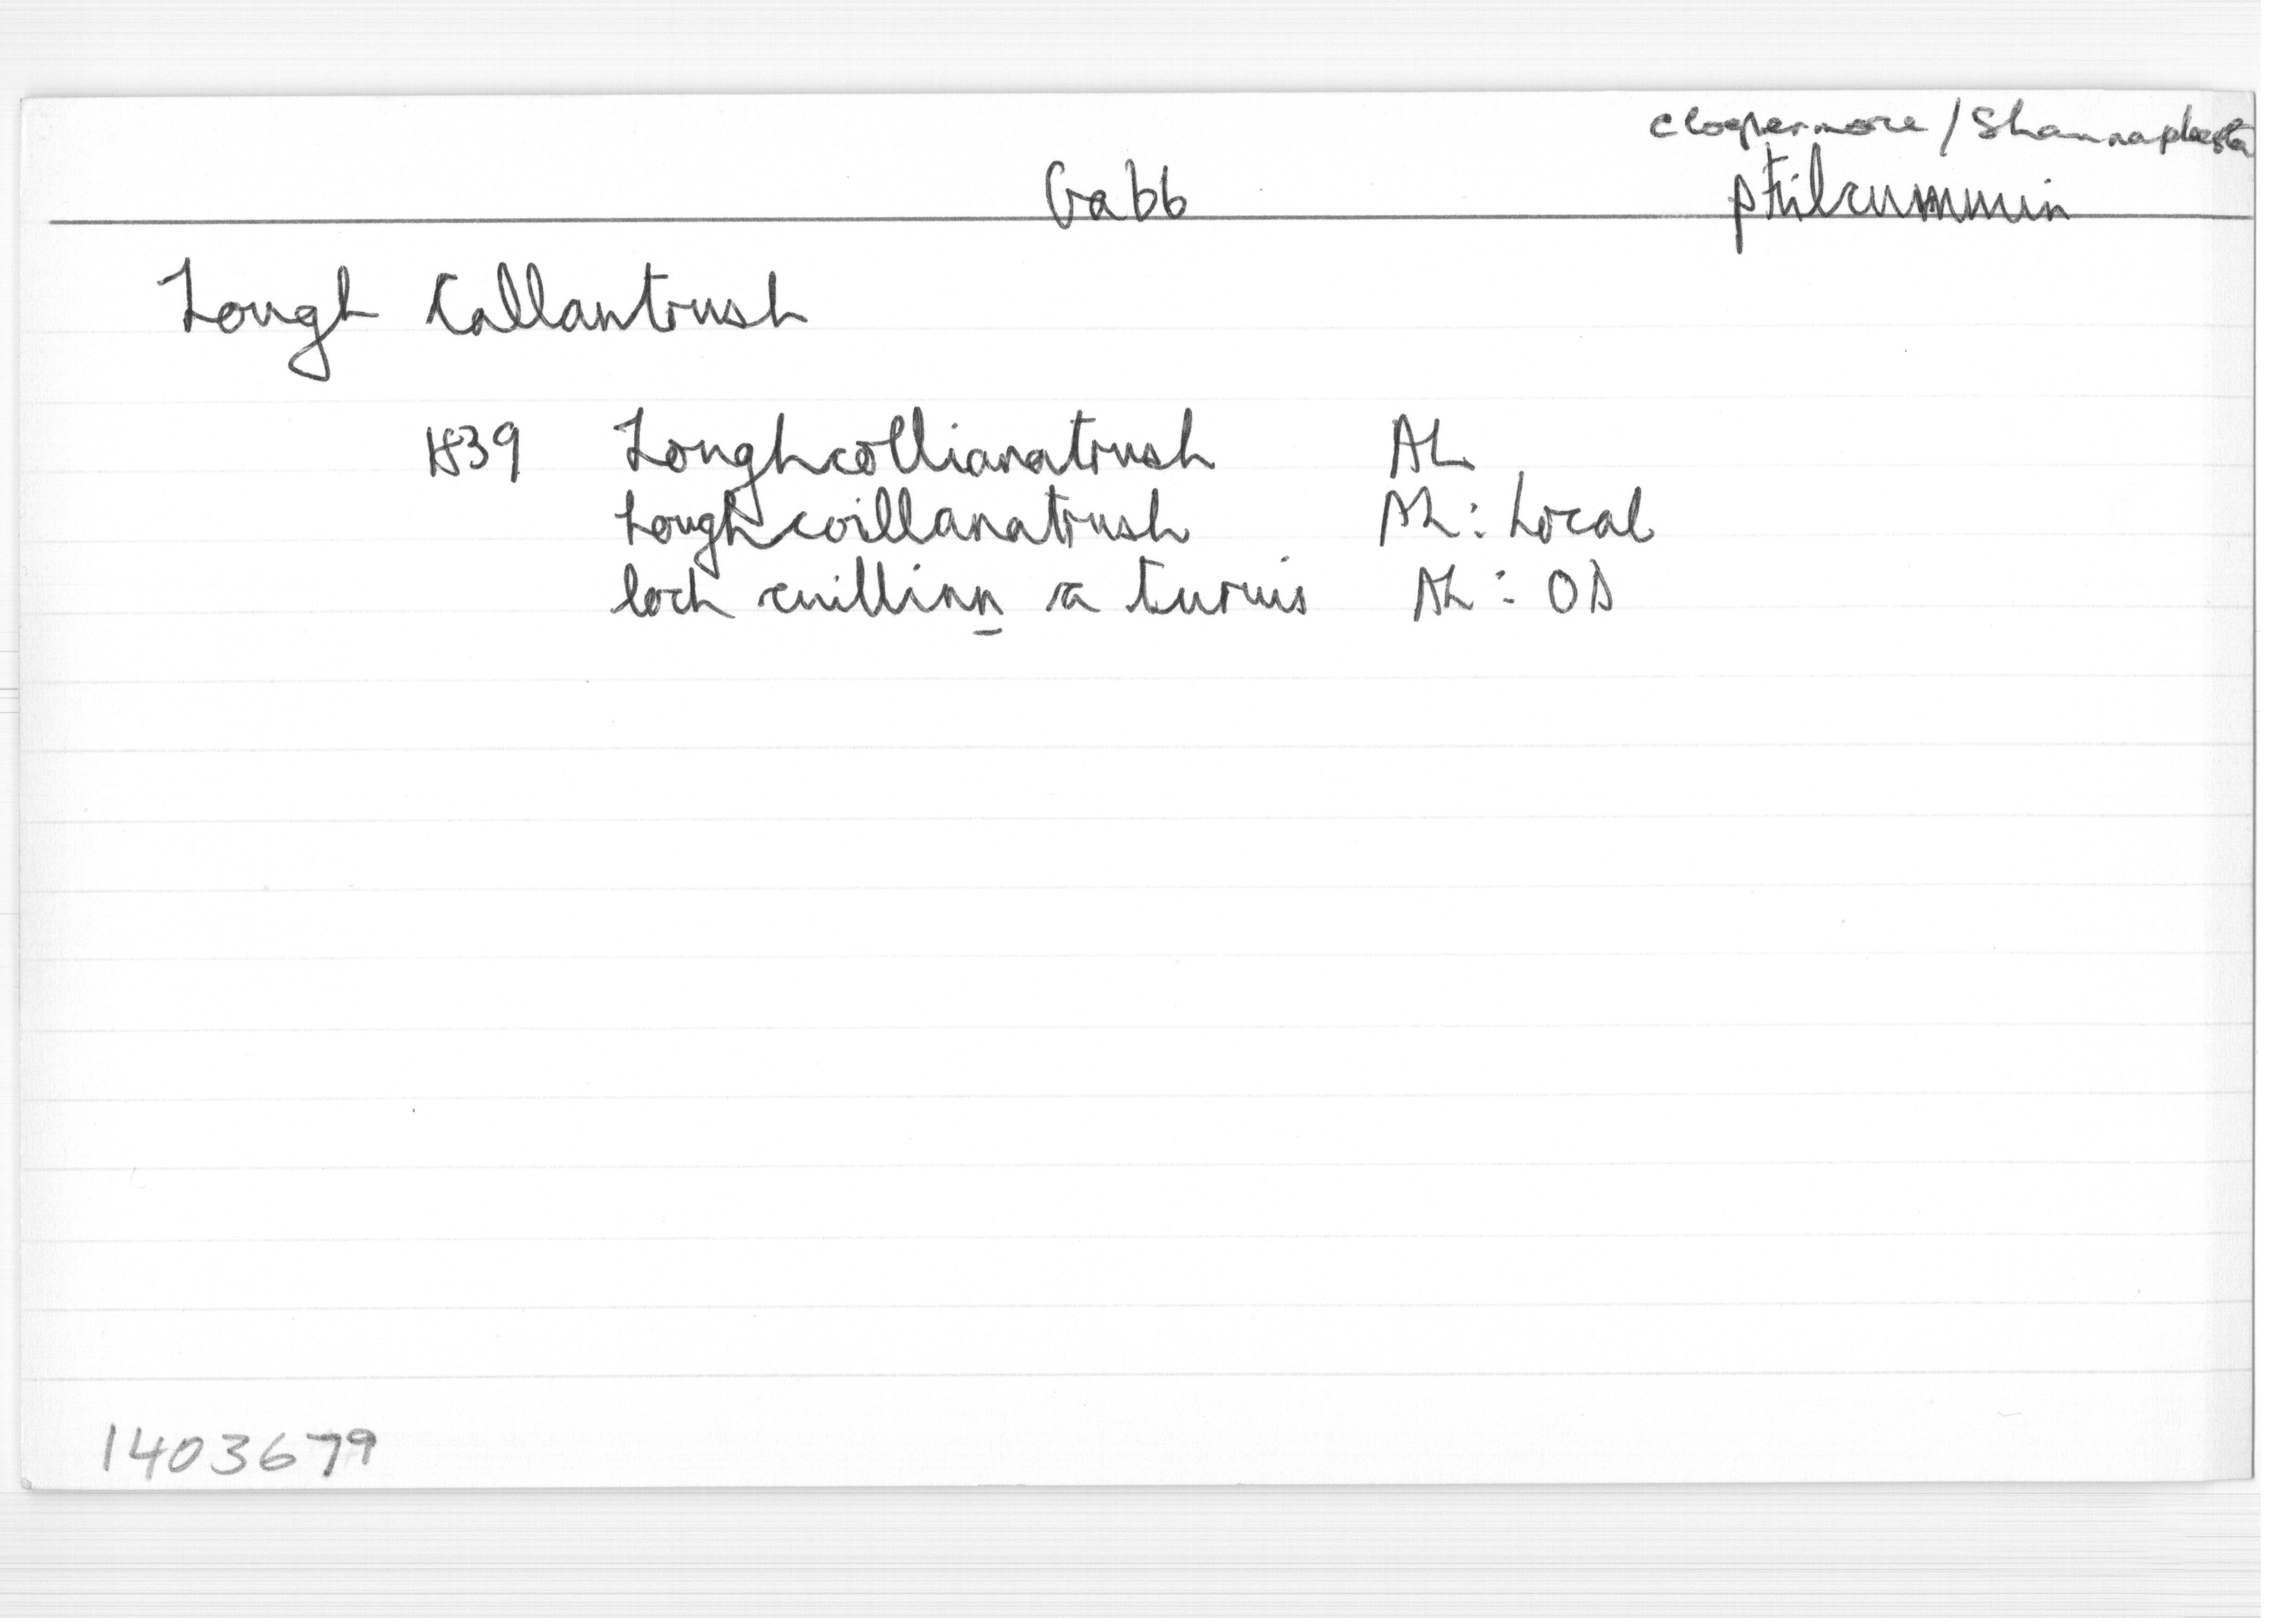 Cloghermore / Shannapheasteen
Gabb
p Kilcummin
Lough Callantrush
1839 Loughcollianatrush AL
Loughcoillanatrush AL : Local
loch cuillinn a turuis AL : OD
1403679